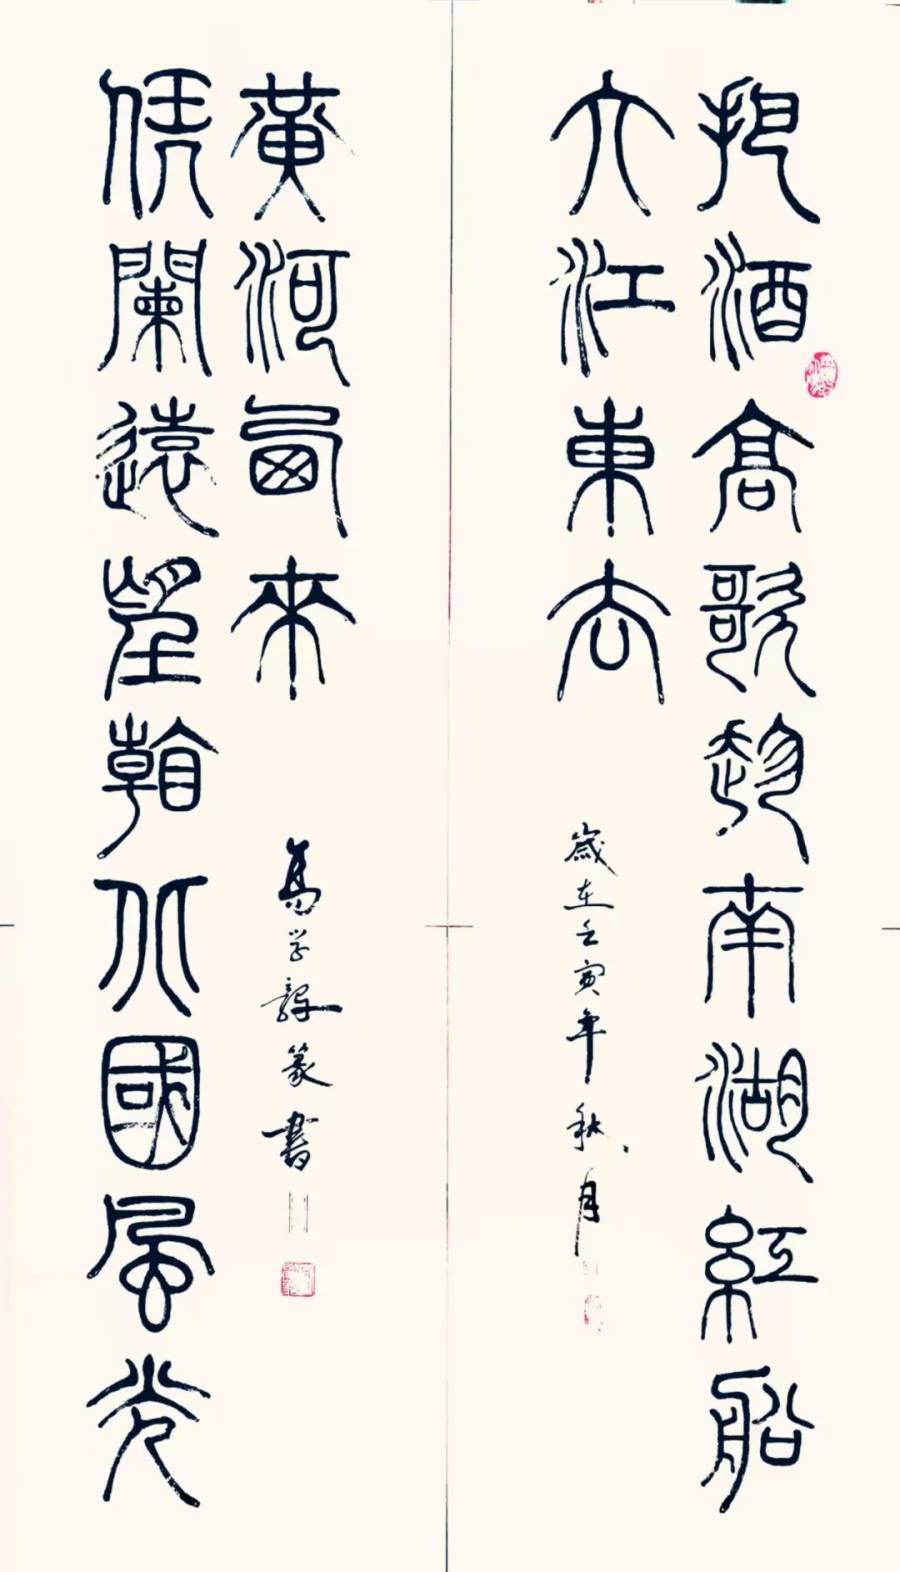 把酒高歌趁南湖紅船
大江東去
歲在壬寅年秋月
凭闌遠望朝北國風光
黃河西來
学篆書